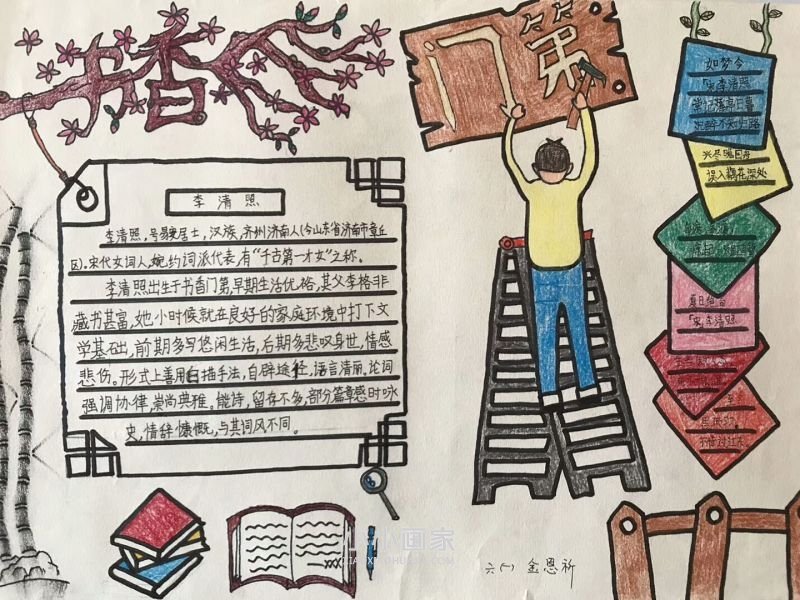 书香
门第
李清照
李清照，号易安居士，汉族，齐州济南人（今山东省济南市章丘
区）.宋代女词人，婉约词派代表，有“千古第一才女”之称。
李清照出生于书香门第，早期生活优裕，其父李格非
藏书甚富，她小时候就在良好的家庭环境中打下文
学基础，前期多写悠闲生活，后期多悲叹身世，情感
悲伤。形式上善用白描手法，自辟途径，语言清丽，论词
强调协律，崇尚典雅。能诗，留存不多，部分篇章感时咏
史，情辞慷慨，与其词风不同。
如梦令
宋李清照
常记溪亭日暮
沉醉不知归路
兴尽晚回舟
误入藕花深处
夏日绝句
宋李清照
不肯过江东
小小画家
六(一) 金恩祈